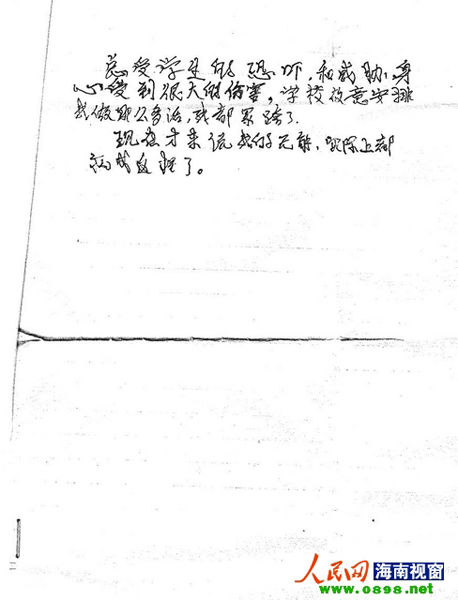 总受学生的恐吓，和威胁，身
心受到很大的伤害，学校故意安排
我做那么多活，我都累垮了。
现在才来说我的无能，实际上都
把我逼程了。
人民网 海南视窗
www.0898.net